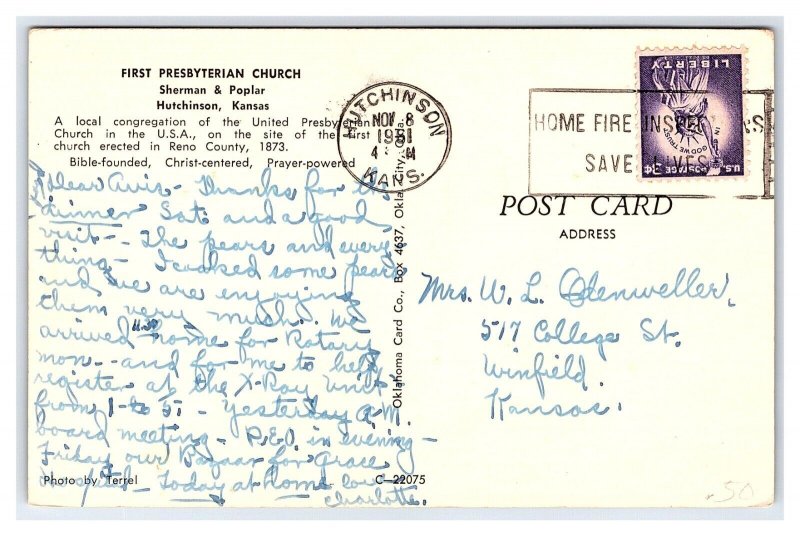 FIRST PRESBYTERIAN CHURCH
Sherman & Poplar
Hutchinson, Kansas
A local congregation of the United Presbyterian
Church in the U.S.A., on the site of the first
church erected in Reno County, 1873.
Bible-founded, Christ-centered, Prayer-powered
Dear Avis - Thanks for the
dinner Sat. and a good
visit - The pears and every-
thing - I cooked some pears
and we are enjoying
them very much. We
arrived home 11:30 for Rotary
mon - and for me to help
register at the X-Ray unit
from 1 - to 5 - Yesterday A.M.
board meeting - P.E.O in evening -
Friday our Bazaar for Grace
Today at Home love
Charlotte.
Photo by Terrel
C-22075
Oklahoma Card Co., Box 4637, Okla. City, Okla.
HUTCHINSON
NOV 8
1961
4 M
KANS.
HOME FIRE INSPECTIONS
SAVE LIVES
LIBERTY
IN GOD WE TRUST
U.S. POSTAGE 3¢
POST CARD
ADDRESS
Mrs. W. L. Odenweller,
517 College St.
Winfield
Kansas.
.50